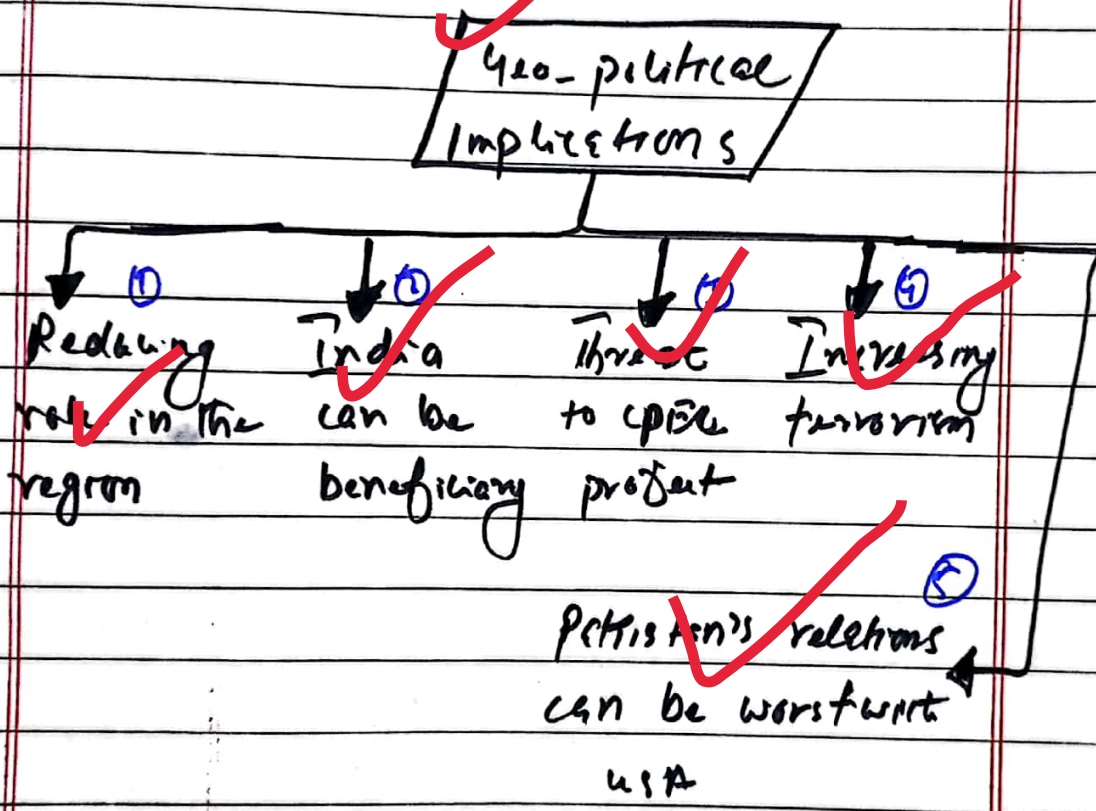 Geo-political
Implications
① ② ③ ④
Reducing
role in the
region
India
can be
beneficiary
Threat
to CPEC
project
Increasing
terrorism
⑤
Pakistan's relations
can be worst with
USA